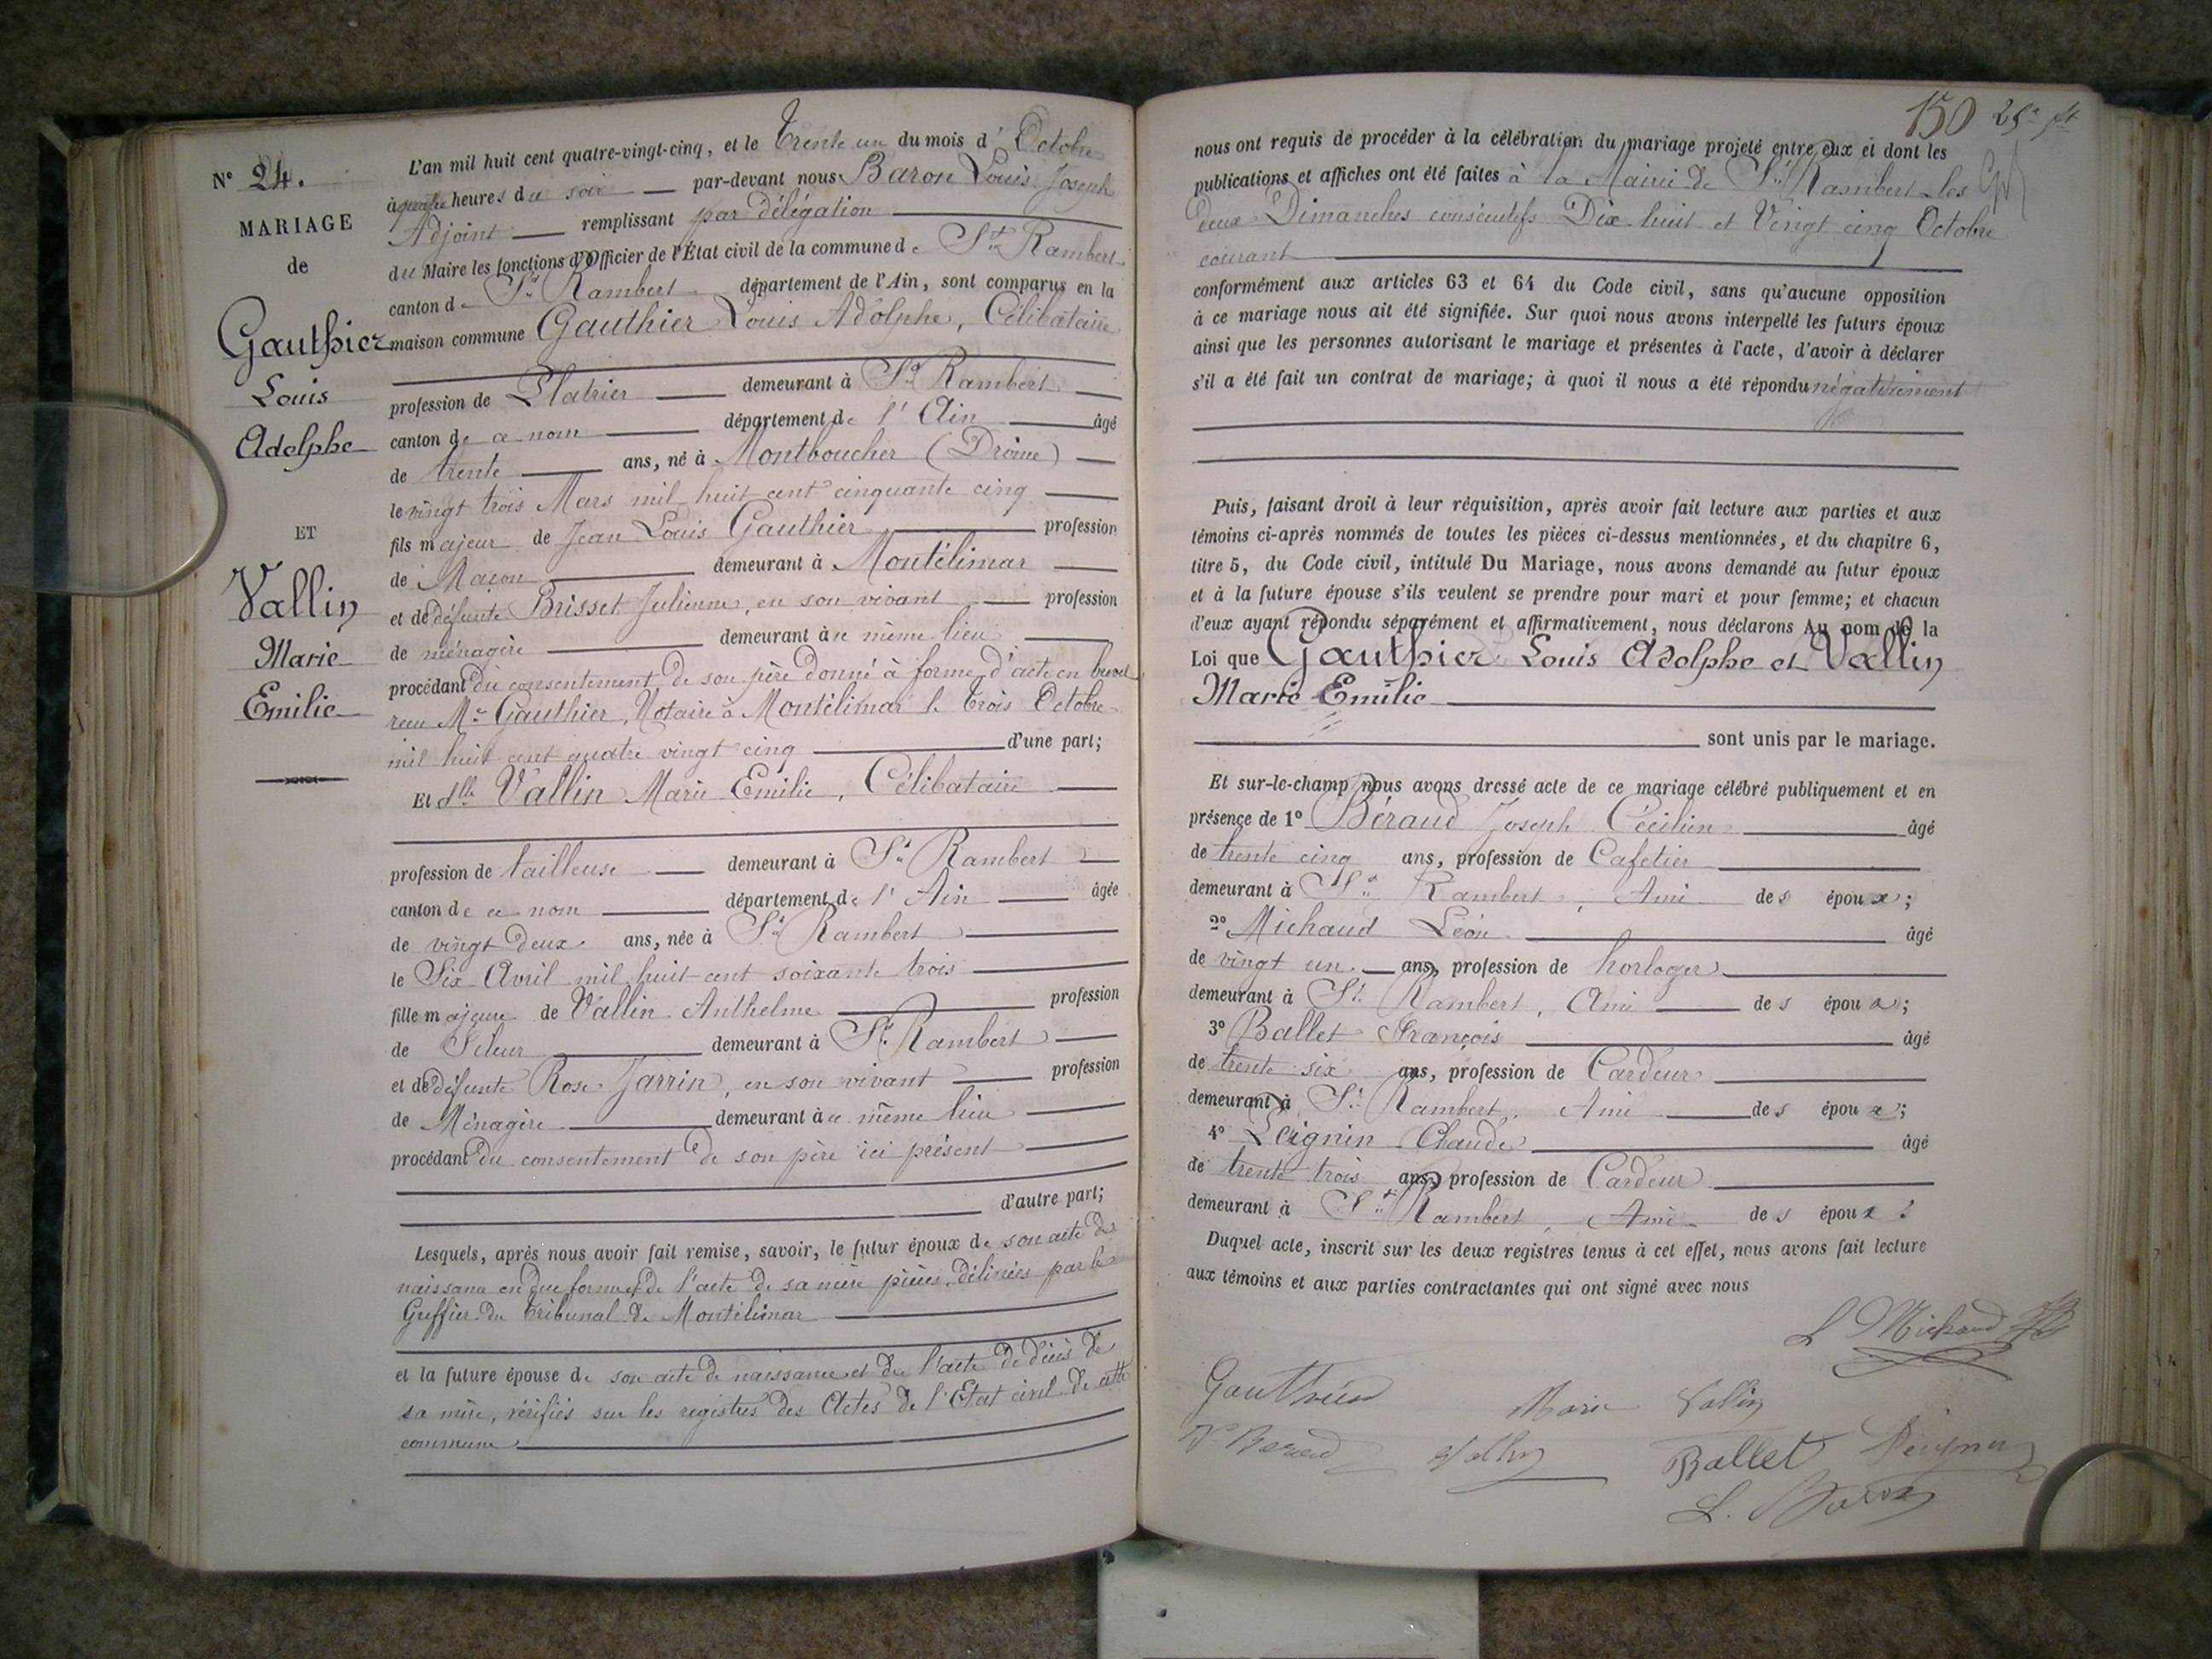 N° 24.
MARIAGE
de
Gauthier
Louis
Adolphe
ET
Vallin
Marie
Emilie
L'an mil huit cent quatre-vingt-cinq, et le Trente un du mois d'Octobre
à quatre heures du soir par-devant nous Baron Louis Joseph
Adjoint remplissant par délégation
du Maire les fonctions d'Officier de l'État civil de la commune de St Rambert
canton de St Rambert département de l'Ain, sont comparus en la
maison commune Gauthier Louis Adolphe, Célibataire
profession de Platrier demeurant à St Rambert
canton de ce nom département de l'Ain âgé
de trente ans, né à Montboucher (Drôme)
le vingt trois Mars mil huit cent cinquante cinq
fils majeur de Jean Louis Gauthier profession
de Maçon demeurant à Montélimar
et de défunte Brisset Julienne, en son vivant profession
de ménagère demeurant à ce même lieu
procédant du consentement de son père donné à forme d'acte en brevet
reçu Me Gauthier, Notaire à Montélimar le trois Octobre
mil huit cent quatre vingt cinq d'une part;
Et dlle Vallin Marie Emilie, Célibataire
profession de tailleuse demeurant à St Rambert
canton de ce nom département de l'Ain âgée
de vingt deux ans, née à St Rambert
le Six Avril mil huit cent soixante trois
fille majeure de Vallin Anthelme profession
de demeurant à St Rambert
et de défunte Rose Jarrin, en son vivant profession
de Ménagère demeurant à ce même lieu
procédant du consentement de son père ici présent
d'autre part;
Lesquels, après nous avoir fait remise, savoir, le futur époux de son acte de
naissance en due forme et de l'acte de sa mère pièces délivrées par le
Greffier du Tribunal de Montélimar
et la future épouse de son acte de naissance et de l'acte de décès de
sa mère, vérifiés sur les registres des Actes de l'Etat civil de cette
commune
150
nous ont requis de procéder à la célébration du mariage projeté entre eux et dont les
publications et affiches ont été faites à la Mairie de St Rambert les
deux Dimanches consécutifs Dix huit et Vingt cinq Octobre
courant
conformément aux articles 63 et 64 du Code civil, sans qu'aucune opposition
à ce mariage nous ait été signifiée. Sur quoi nous avons interpellé les futurs époux
ainsi que les personnes autorisant le mariage et présentes à l'acte, d'avoir à déclarer
s'il a été fait un contrat de mariage; à quoi il nous a été répondu négativement
Puis, faisant droit à leur réquisition, après avoir fait lecture aux parties et aux
témoins ci-après nommés de toutes les pièces ci-dessus mentionnées, et du chapitre 6,
titre 5, du Code civil, intitulé Du Mariage, nous avons demandé au futur époux
et à la future épouse s'ils veulent se prendre pour mari et pour femme; et chacun
d'eux ayant répondu séparément et affirmativement, nous déclarons Au nom de la
Loi que Gauthier Louis Adolphe et Vallin
Marie Emilie
sont unis par le mariage.
Et sur-le-champ nous avons dressé acte de ce mariage célébré publiquement et en
présence de 1° Béraud Joseph Cécilien âgé
de trente cinq ans, profession de Cafetier
demeurant à St Rambert, Ami des époux;
2° Michaud Léon âgé
de vingt un ans, profession de horloger
demeurant à St Rambert, Ami des époux;
3° Ballet François âgé
de trente six ans, profession de Cardeur
demeurant à St Rambert, Ami des époux;
4° Peignin Claude âgé
de trente trois ans, profession de Cardeur
demeurant à St Rambert, Ami des époux:
Duquel acte, inscrit sur les deux registres tenus à cet effet, nous avons fait lecture
aux témoins et aux parties contractantes qui ont signé avec nous
L Michaud
Gauthier Marie Vallin
Beraud Vallin Ballet Peignin
L. Baron